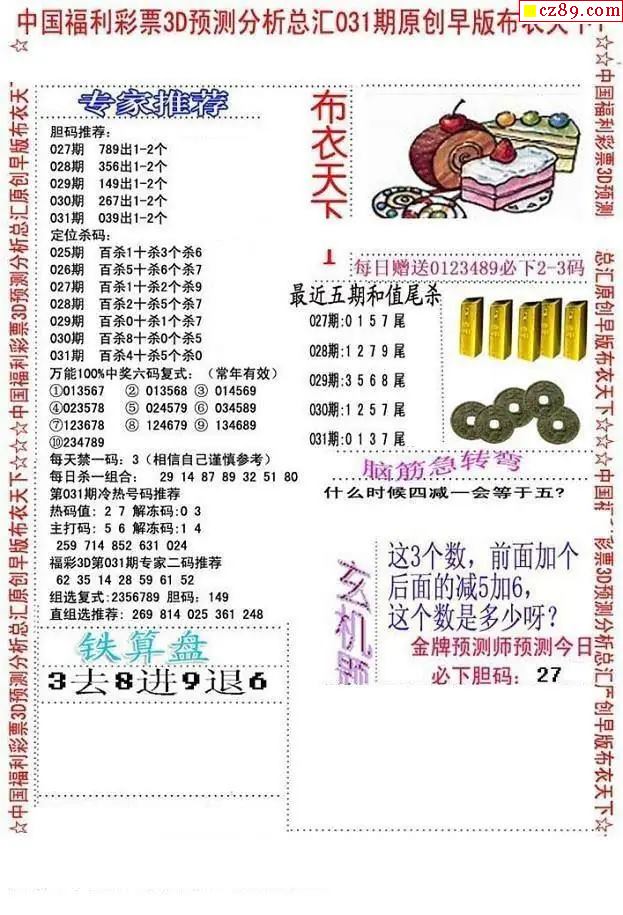 中国福利彩票3D预测分析总汇031期原创早版布衣天下
cz89.com
专家推荐
胆码推荐:
027期 789出1-2个
028期 356出1-2个
029期 149出1-2个
030期 267出1-2个
031期 039出1-2个
定位杀码:
025期 百杀1十杀3个杀6
026期 百杀5十杀6个杀7
027期 百杀1十杀2个杀9
028期 百杀2十杀5个杀7
029期 百杀0十杀1个杀7
030期 百杀8十杀0个杀5
031期 百杀4十杀5个杀0
万能100%中奖六码复式:(常年有效)
①013567 ② 013568 ③ 014569
④023578 ⑤ 024579 ⑥ 034589
⑦123678 ⑧ 124679 ⑨ 134689
⑩234789
每天禁一码:3(相信自己谨慎参考)
每日杀一组合: 29 14 87 89 32 51 80
第031期冷热号码推荐
热码值: 2 7 解冻码:0 3
主打码: 5 6 解冻码:1 4
259 714 852 631 024
福彩3D第031期专家二码推荐
62 35 14 28 59 61 52
组选复式:2356789 胆码: 149
直组选推荐: 269 814 025 361 248
铁算盘
3去8进9退6
布衣天下
每日赠送0123489必下2-3码
最近五期和值尾杀
027期:0 1 5 7 尾
028期:1 2 7 9 尾
029期:3 5 6 8 尾
030期:1 2 5 7 尾
031期:0 1 3 7 尾
脑筋急转弯
什么时候四减一会等于五?
玄机题
这3个数，前面加个
后面的减5加6，
这个数是多少呀?
金牌预测师预测今日
必下胆码: 27
☆中国福利彩票3D预测分析总汇原创早版布衣天下☆☆☆中国福利彩票3D预测分析总汇原创早版布衣天
☆☆中国福利彩票3D预测
总汇原创早版布衣天下☆☆☆中国福
彩票3D预测分析总汇原创早版布衣天下☆